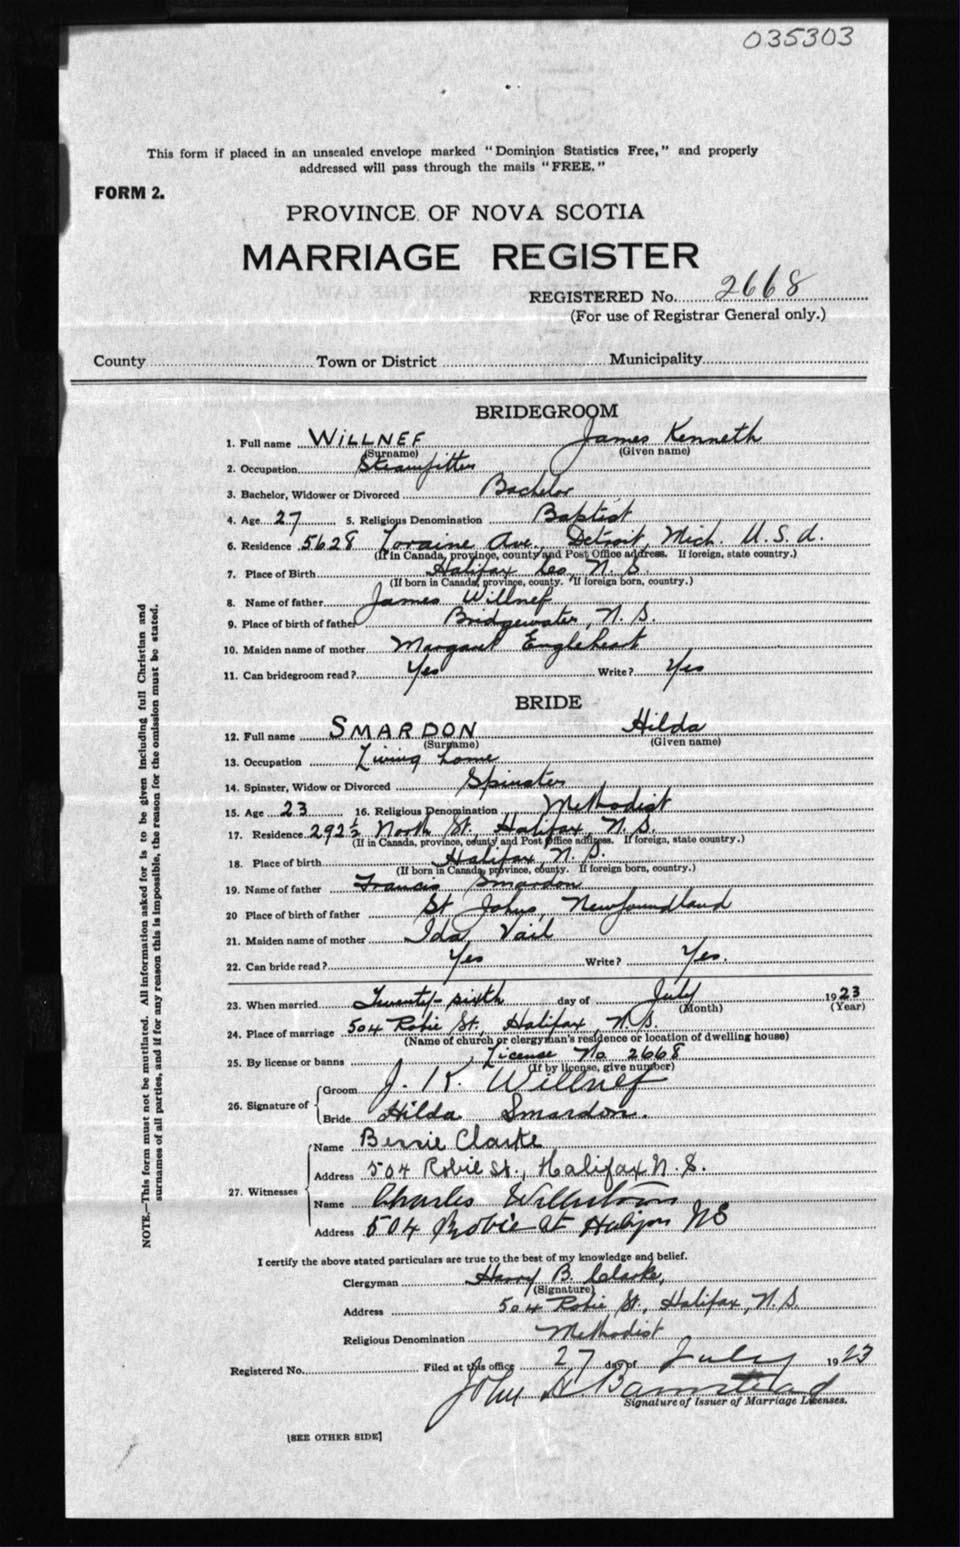 035303
This form if placed in an unsealed envelope marked "Dominion Statistics Free," and properly
addressed will pass through the mails "FREE."
FORM 2.
PROVINCE OF NOVA SCOTIA
MARRIAGE REGISTER
REGISTERED No. 2668
(For use of Registrar General only.)
County Town or District Municipality
BRIDEGROOM
1. Full name WILLNEF James Kenneth
(Surname) (Given name)
2. Occupation Steamfitter
3. Bachelor, Widower or Divorced Bachelor
4. Age 27 5. Religious Denomination Baptist
6. Residence 5628 Loraine Ave. Detroit, Mich. U.S.A.
(If in Canada, province, county and Post Office address. If foreign, state country.)
7. Place of Birth Halifax Co, N.S.
(If born in Canada, province, county. If foreign born, country.)
8. Name of father James Willnef
9. Place of birth of father Bridgewater, N.S.
10. Maiden name of mother Margaret Engleheart
11. Can bridegroom read? Yes Write? Yes
BRIDE
12. Full name SMARDON Hilda
(Surname) (Given name)
13. Occupation Living home
14. Spinster, Widow or Divorced Spinster
15. Age 23 16. Religious Denomination Methodist
17. Residence 292½ North St., Halifax, N.S.
(If in Canada, province, county and Post Office address. If foreign, state country.)
18. Place of birth Halifax, N.S.
(If born in Canada, province, county. If foreign born, country.)
19. Name of father Francis Smardon
20 Place of birth of father St Johns, Newfoundland
21. Maiden name of mother Ida Vail
22. Can bride read? Yes Write? Yes.
23. When married Twenty-sixth day of July 1923
(Month) (Year)
24. Place of marriage 504 Robie St., Halifax, N.S.
(Name of church or clergyman's residence or location of dwelling house)
25. By license or banns License No. 2668
(If by license, give number)
26. Signature of Groom J. K. Willnef
Bride Hilda Smardon.
27. Witnesses Name Bessie Clarke
Address 504 Robie St., Halifax N.S.
Name Charles
Address 504 Robie St Halifax NS
I certify the above stated particulars are true to the best of my knowledge and belief.
Clergyman Harry B. Clarke,
(Signature)
Address 504 Robie St., Halifax, N.S.
Religious Denomination Methodist
Registered No. Filed at this office 27 day of July 1923
John A Barnstead
Signature of Issuer of Marriage Licenses.
[SEE OTHER SIDE]
NOTE.—This form must not be mutilated. All information asked for is to be given including full Christian and
surnames of all parties, and if for any reason this is impossible, the reason for the omission must be stated.